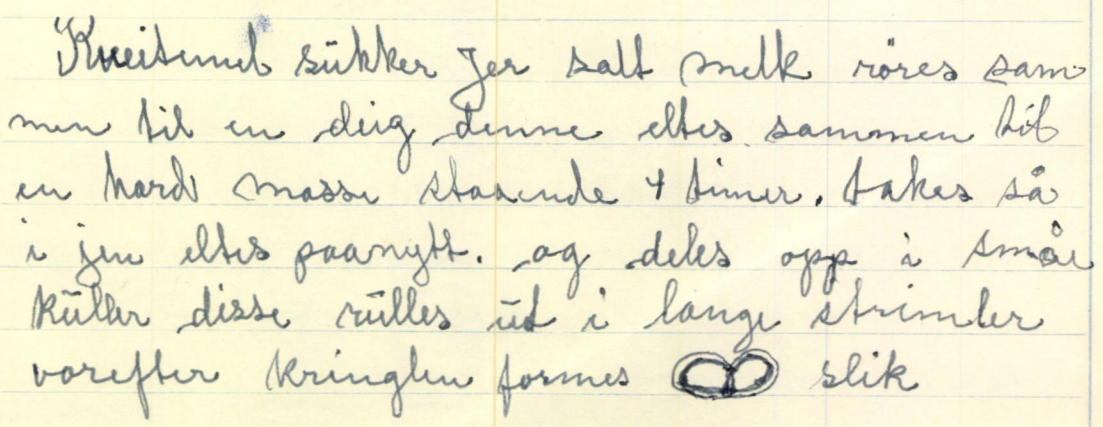 Kneitemel sükker Jer salt melk röres sam
men til en deig denne eltes sammen til
en hard masse staaende 4 timer. takes så
i jen eltes paanytt. og deles opp i småe
küller disse rülles üt i lange strimler
vorefter kringlen formes slik